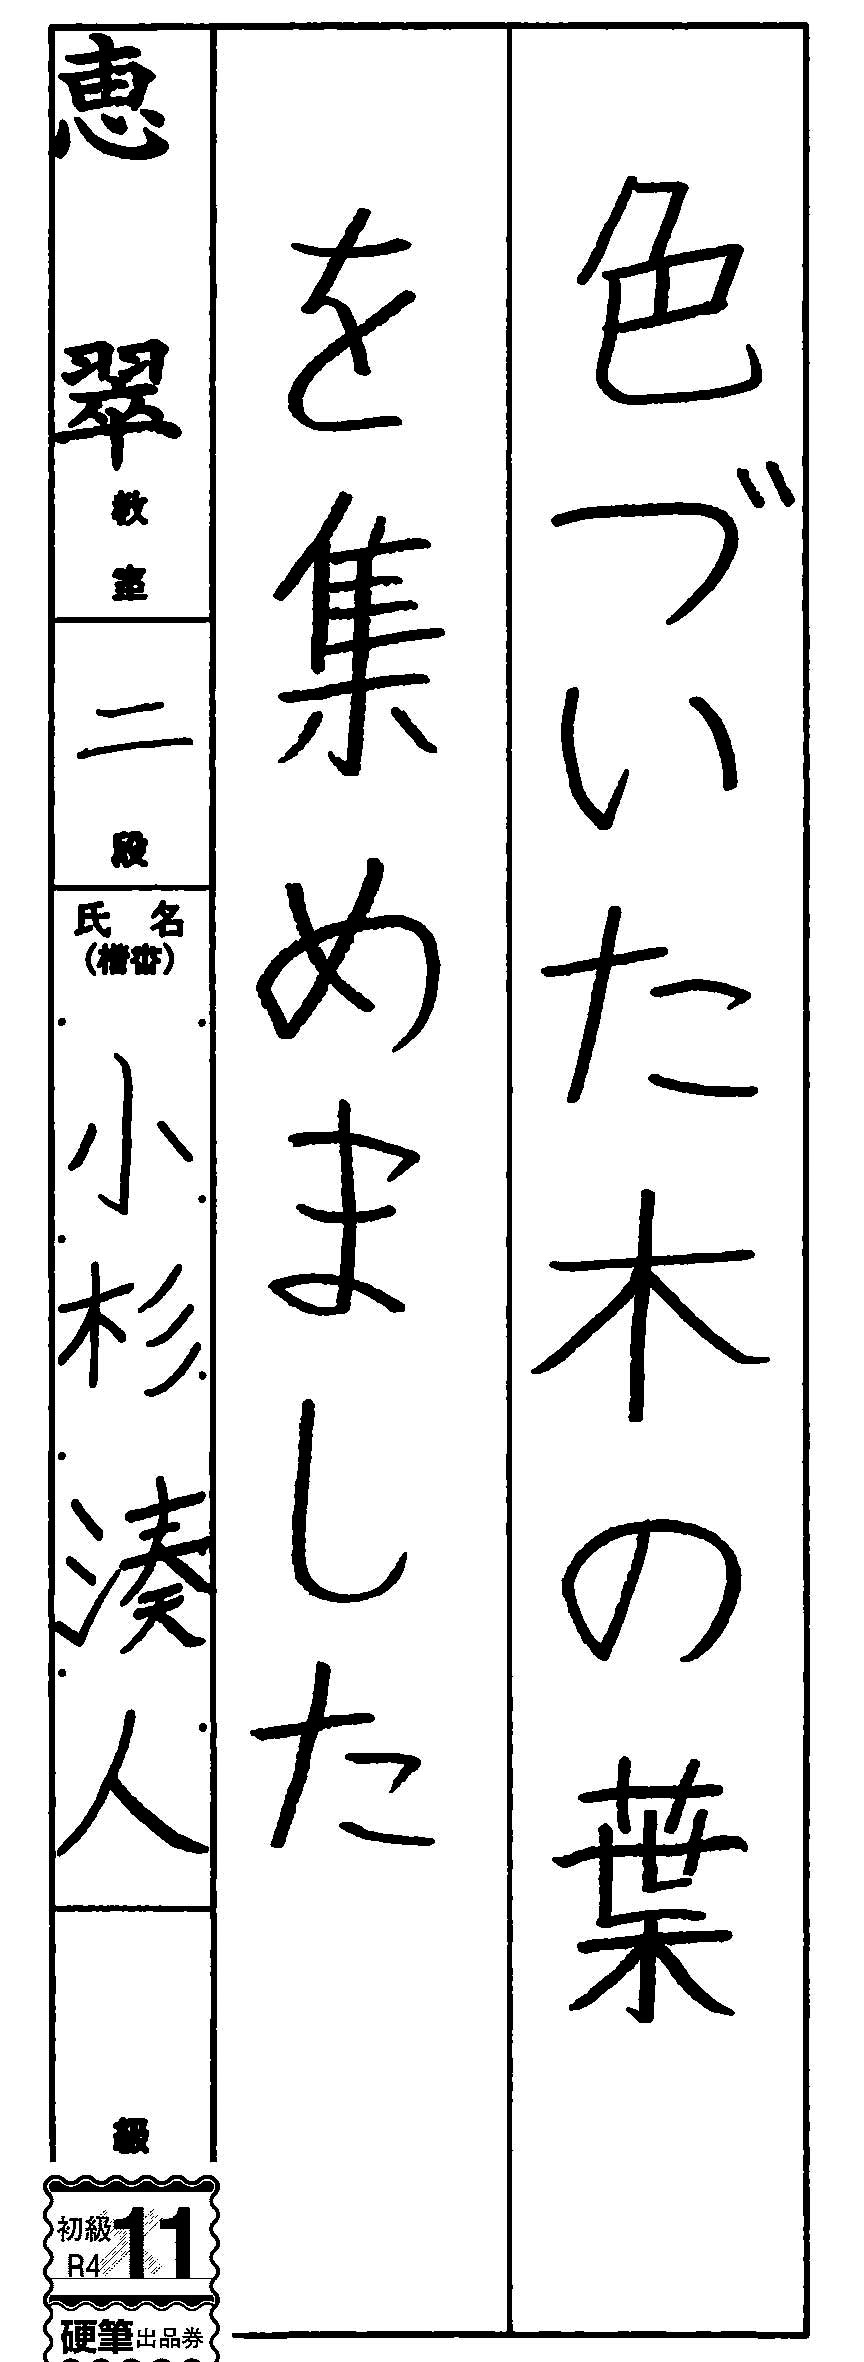 色づいた木の葉
を集めました
恵翠教室
二段
氏名
(楷書)
小杉湊人
級
初級
R4
11
硬筆出品券